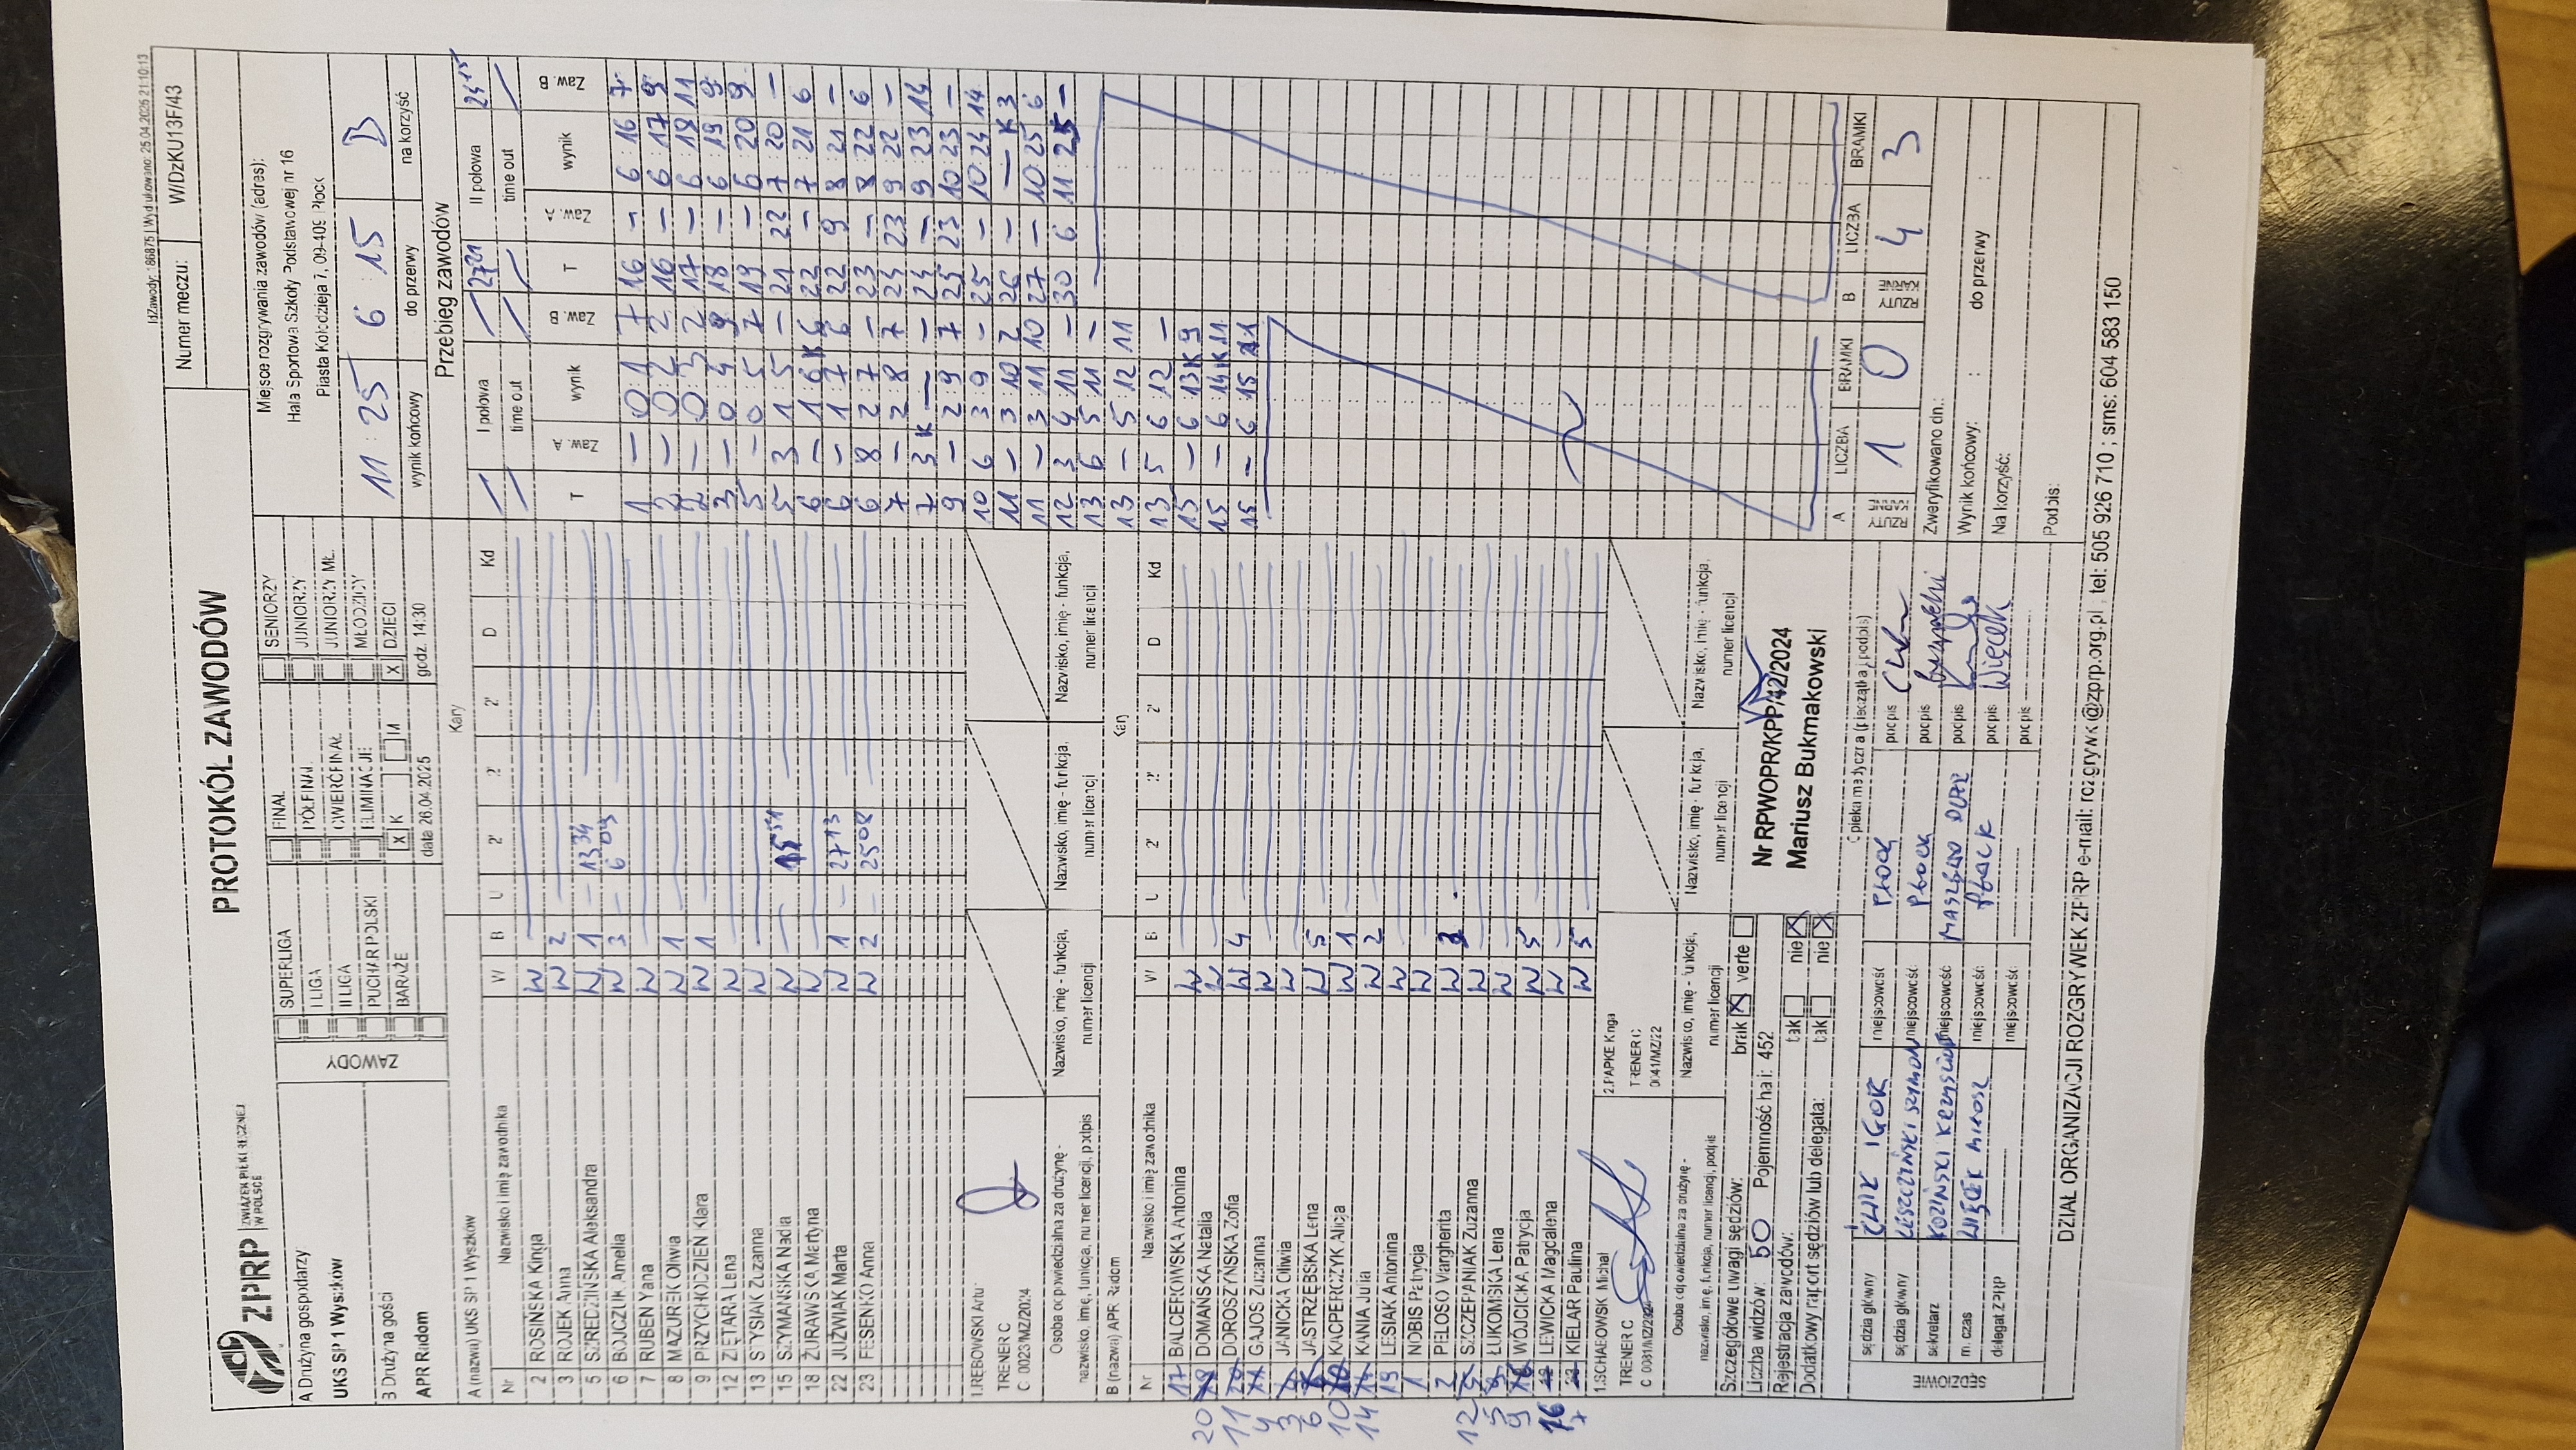 IdZawody: 186875 | Wydrukowano: 25.04.2025 21:10:13
ZPRP ZWIĄZEK PIŁKI RĘCZNEJ W POLSCE
PROTOKÓŁ ZAWODÓW
Numer meczu: W/DzKU13F/43
A Drużyna gospodarzy
UKS SP 1 Wyszków
B Drużyna gości
APR Radom
ZAWODY
SUPERLIGA
I LIGA
II LIGA
PUCHAR POLSKI
BARAŻE
FINAŁ
PÓŁFINAŁ
ĆWIERĆFINAŁ
ELIMINACJE
X K M
data 26.04.2025
SENIORZY
JUNIORZY
JUNIORZY MŁ.
MŁODZICY
X DZIECI
godz. 14:30
Miejsce rozgrywania zawodów (adres):
Hala Sportowa Szkoły Podstawowej nr 16
Piasta Kołodzieja 7, 09-409 Płock
11 : 25 6 : 15 B
wynik końcowy do przerwy na korzyść
A (nazwa) UKS SP 1 Wyszków Kary
Nr Nazwisko i imię zawodnika W B U 2' 2' 2' D Kd
2 ROSIŃSKA Kinga W
3 ROJEK Anna W 2
5 SZREDZIŃSKA Aleksandra W 1 13 34
6 BOJCZUK Amelia W 3 6 03
7 RUBEN Yana W
8 MAZUREK Oliwia W 1
9 PRZYCHODZIEŃ Klara W 1
12 ZIĘTARA Lena W
13 STYSIAK Zuzanna W
15 SZYMAŃSKA Nadia W
18 ŻURAWSKA Martyna W
22 JUŹWIAK Marta W 1 27 13
23 FESENKO Anna W 2 25 08
1.RĘBOWSKI Artur
TRENER C
C 0023/MZ/2024
Osoba odpowiedzialna za drużynę -
nazwisko, imię, funkcja, numer licencji, podpis
Nazwisko, imię - funkcja,
numer licencji
Nazwisko, imię - funkcja,
numer licencji
Nazwisko, imię - funkcja,
numer licencji
B (nazwa) APR Radom Kary
Nr Nazwisko i imię zawodnika W B U 2' 2' 2' D Kd
17 BALCEROWSKA Antonina W
20 DOMAŃSKA Natalia W
11 DOROSZYŃSKA Zofia W 4
4 GAJOS Zuzanna W
3 JANICKA Oliwia W
6 JASTRZĘBSKA Lena W 5
10 KACPERCZYK Alicja W 1
14 KANIA Julia W 2
19 LESIAK Antonina W
1 NOBIS Patrycja W
2 PIELOSO Margherita W 3
12 SZCZEPANIAK Zuzanna W
5 ŁUKOMSKA Lena W
9 WÓJCICKA Patrycja W 5
16 LEWICKA Magdalena W
7 KIELAR Paulina W 5
TRENER C
2.PAPKE Kinga
TRENER C
0041/MZ/22
Osoba odpowiedzialna za drużynę -
nazwisko, imię, funkcja, numer licencji, podpis
Nazwisko, imię - funkcja,
numer licencji
Nazwisko, imię - funkcja,
numer licencji
Nazwisko, imię - funkcja,
numer licencji
Szczegółowe uwagi sędziów: brak X verte
Liczba widzów: 50 Pojemność hali: 452
Rejestracja zawodów: tak nie X
Dodatkowy raport sędziów lub delegata: tak nie X
Nr RPWOPR/KPP/42/2024
Mariusz Bukmakowski
Opieka medyczna (pieczątka i podpis)
SĘDZIOWIE
sędzia główny ĆWIK IGOR miejscowość PŁOCK podpis
sędzia główny LESZCZYŃSKI SZYMON miejscowość PŁOCK podpis
sekretarz KOZIŃSKI KRZYSZTOF miejscowość MASZEWO DUŻE podpis
m. czas WIĘCEK MIŁOSZ miejscowość PŁOCK podpis Więcek
delegat ZPRP miejscowość podpis
Przebieg zawodów
I połowa 27 21 II połowa 24 15
time out time out
T Zaw. A wynik Zaw. B
1 — 0:1 7
2 — 0:2 2
2 — 0:3 2
3 — 0:4 9
5 — 0:5 7
5 3 1:5 —
6 — 1:6 K 6
6 — 1:7 6
6 8 2:7 —
7 — 2:8 7
7 3 K — —
9 — 2:9 7
10 6 3:9 —
11 — 3:10 2
11 — 3:11 10
12 3 4:11 —
13 6 5:11 —
13 — 5:12 11
13 5 6:12 —
15 — 6:13 K 9
15 — 6:14 K 11
15 — 6:15 11
T Zaw. A wynik Zaw. B
16 — 6:16 7
16 — 6:17 9
17 — 6:18 11
18 — 6:19 9
19 — 6:20 9
21 22 7:20 —
22 — 7:21 6
22 9 8:21 —
23 — 8:22 6
24 23 9:22 —
24 — 9:23 14
25 23 10:23 —
25 — 10:24 14
26 — — K 3
27 — 10:25 6
30 6 11:25 —
A RZUTY KARNE LICZBA 1 BRAMKI 0
B RZUTY KARNE LICZBA 4 BRAMKI 3
Zweryfikowano dn.:
Wynik końcowy: : do przerwy :
Na korzyść:
Podpis:
DZIAŁ ORGANIZACJI ROZGRYWEK ZPRP e-mail: rozgrywki@zprp.org.pl , tel: 505 926 710 ; sms: 604 583 150